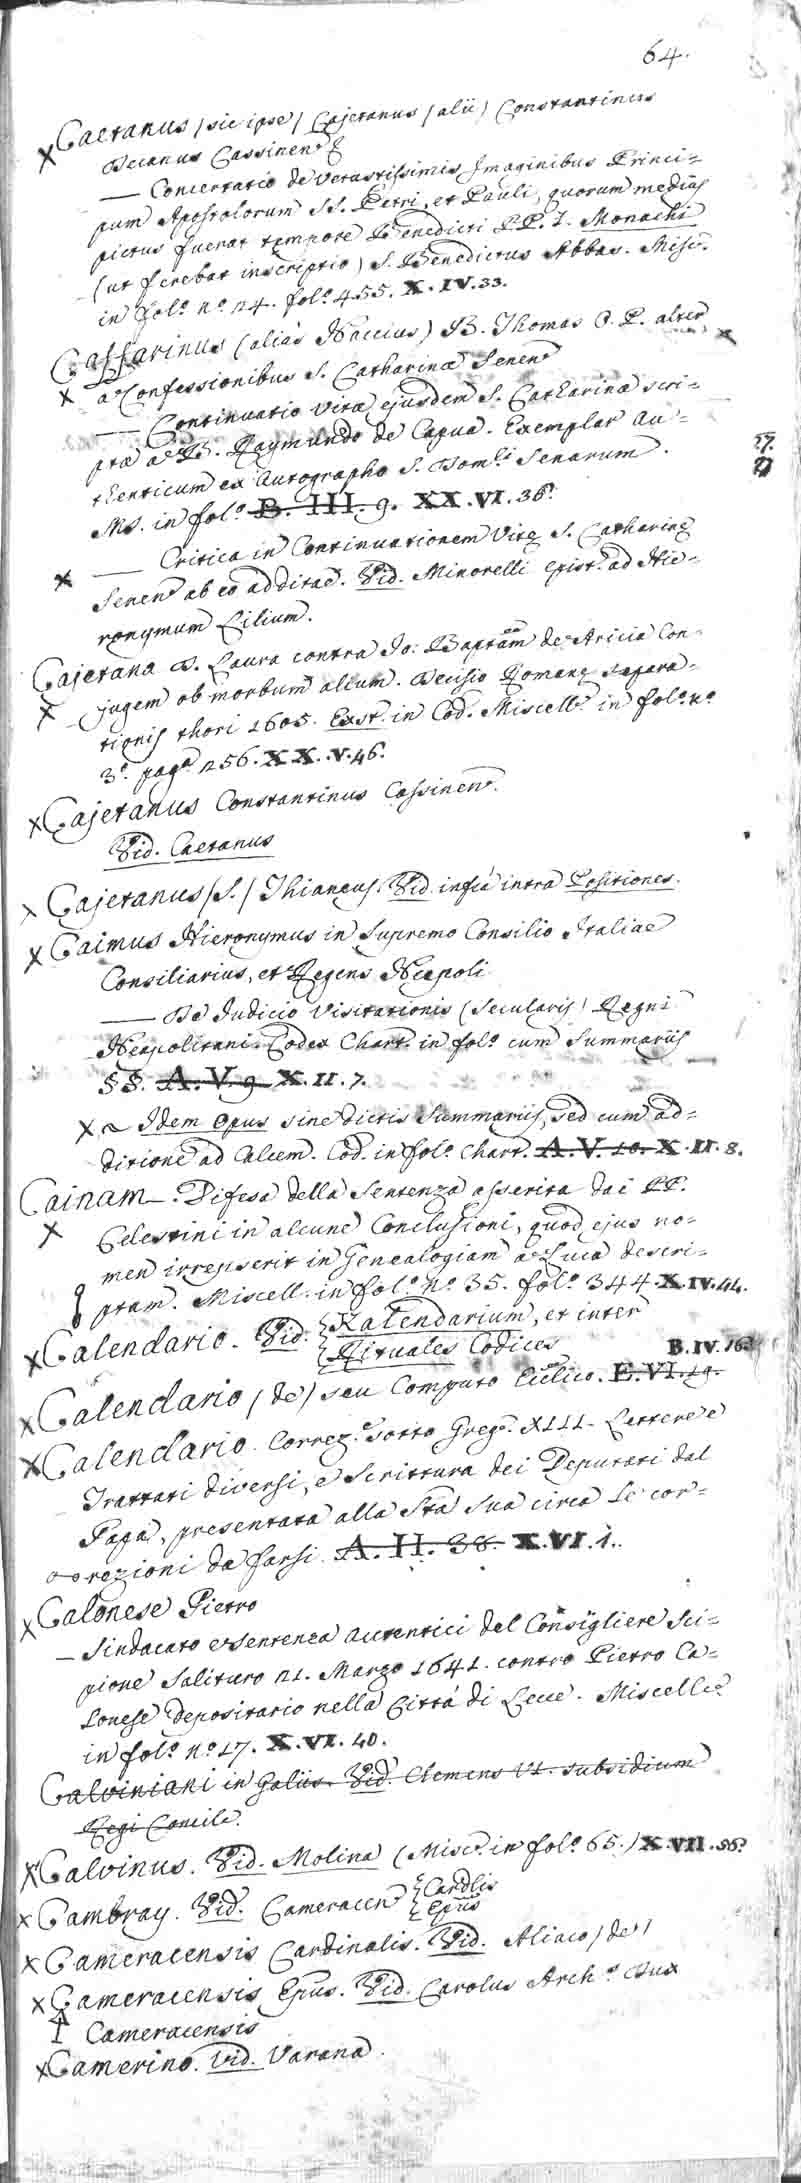 64.
X Caetanus / sic ipse / Cajetanus / alii / Constantinus
Decanus Cassinen.
— Concertatio de vetustissimis Imaginibus Princi=
pum Apostolorum SS. Petri, et Pauli, quorum medius
pictus fuerat tempore Benedicti PP. I. Monachi
(ut ferebat inscriptio) S. Benedictus Abbas. Misc.
in fol. n. 24. fol. 455. X. IV. 33.
Caffarinus (alias Naccius) B. Thomas O. P. alter
X a Confessionibus S. Catharinæ Senen.
— Continuatio vitæ ejusdem S. Catharinæ scri=
ptæ a B. Raymundo de Capua. Exemplar au=
thenticum ex Autographo S. Dom.ci Senarum.
MS. in fol. B. III. 9. XX. VI. 36.
X — Critica in Continuationem Vitæ S. Catharinæ
Senen. ab eo additae. Vid. Minorelli epist. ad Hie=
ronymum Gilium.
Cajetana D. Laura contra Jo: Baptam de Aricia Con=
X jugem ob morbum allum. Decisio Romanæ separa=
tionis thori 1605. Exst. in Cod. Miscell. in fol. n.
3. pag. 256. XX. V. 46.
X Cajetanus Constantinus Cassinen.
Vid. Caetanus
X Cajetanus / S. / Thianeus. Vid. infra intra Positiones.
X Caimus Hieronymus in Supremo Consilio Italiae
Consiliarius, et Regens Neapoli
— De Judicio Visitationis (Secularis) Regni
Neapolitani. Codex Chart. in fol. cum Summariis
§§. A. V. 9 X. II. 7.
X ~ Idem Opus sine dictis Summariis, sed cum ad=
ditione ad Calcem. Cod. in fol. Chart. A. V. 10. X. II. 8.
Cainam. Difesa della Sentenza asserita dai PP.
X Celestini in alcune Conclusioni, quod ejus no=
men irrepserit in Genealogiam a Luca descri=
ptam. Miscell. in fol. n. 35. fol. 344. X. IV. 44.
X Calendario. Vid. { Kalendarium, et inter
{ Rituales Codices
X Calendario / de / seu Computo Ecclico. E. VI. 19. B. IV. 16.
X Calendario. Correz.e sotto Greg. XIII. Lettere e
Trattati diversi, e Scrittura dei Deputati dal
Papa, presentata alla Sta Sua circa le cor=
rezioni da farsi. A. II. 38. X. VI. 1.
X Calonese Pietro
— Sindacato e Sentenza autentici del Consigliere Sci=
pione Salituro 21. Marzo 1641. contro Pietro Ca=
lonese Depositario nella Città di Lecce. Miscell.
in fol. n. 17. X. VI. 40.
Calviniani in Galiis. Vid. Clemens VI. subsidium
Regi Concil.
X Calvinus. Vid. Molina (Misc. in fol. 65.) X. VII. 56.
X Cambray. Vid. Cameracen { Cardlis
{ Epus
X Cameracensis Cardinalis. Vid. Aliaco / de /
X Cameracensis Epus. Vid. Carolus Arch. Dux
Cameracensis
X Camerino. Vid. Varana.